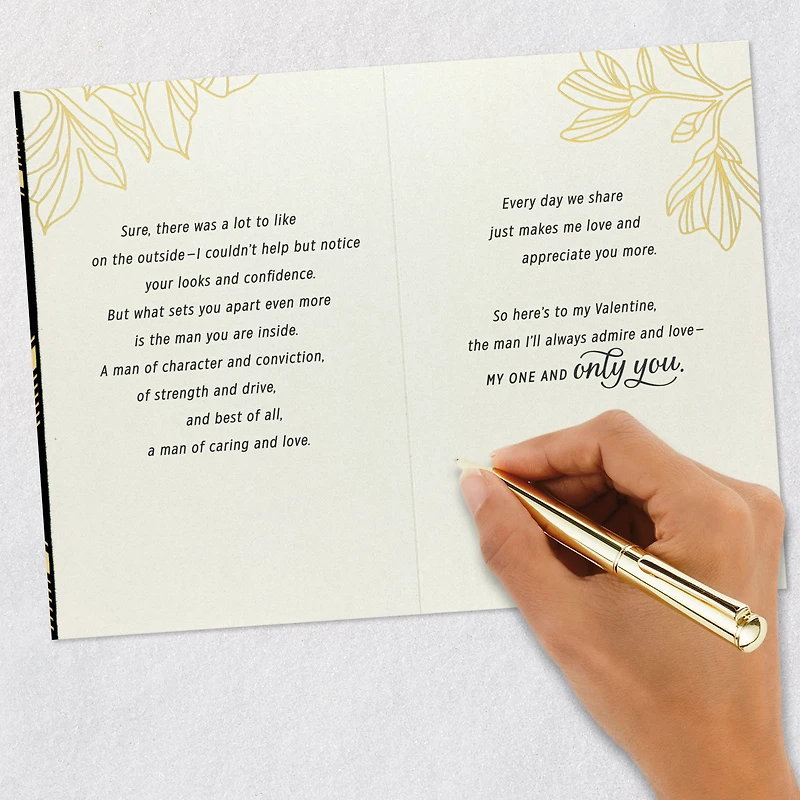 Sure, there was a lot to like
on the outside—I couldn't help but notice
your looks and confidence.
But what sets you apart even more
is the man you are inside.
A man of character and conviction,
of strength and drive,
and best of all,
a man of caring and love.
Every day we share
just makes me love and
appreciate you more.
So here's to my Valentine,
the man I'll always admire and love—
MY ONE AND only you.